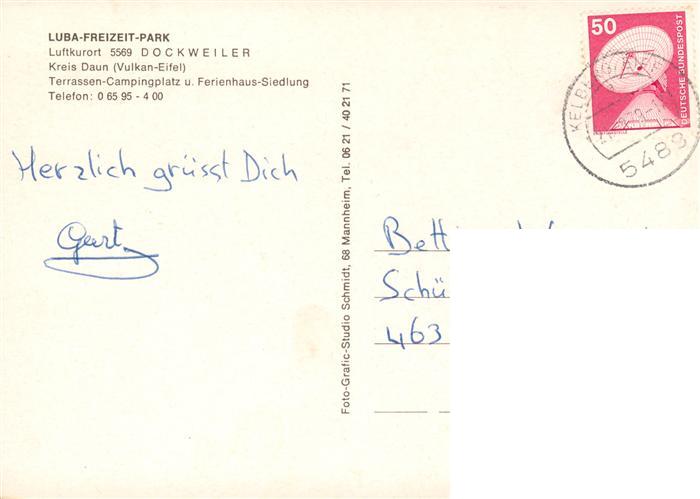 LUBA-FREIZEIT-PARK
Luftkurort 5569 DOCKWEILER
Kreis Daun (Vulkan-Eifel)
Terrassen-Campingplatz u. Ferienhaus-Siedlung
Telefon: 0 65 95 - 4 00
Herzlich grüsst Dich
Gert
Foto-Grafic-Studio Schmidt, 68 Mannheim, Tel. 06 21 / 40 21 71
50
DEUTSCHE BUNDESPOST
5489
Bett
Schü
463